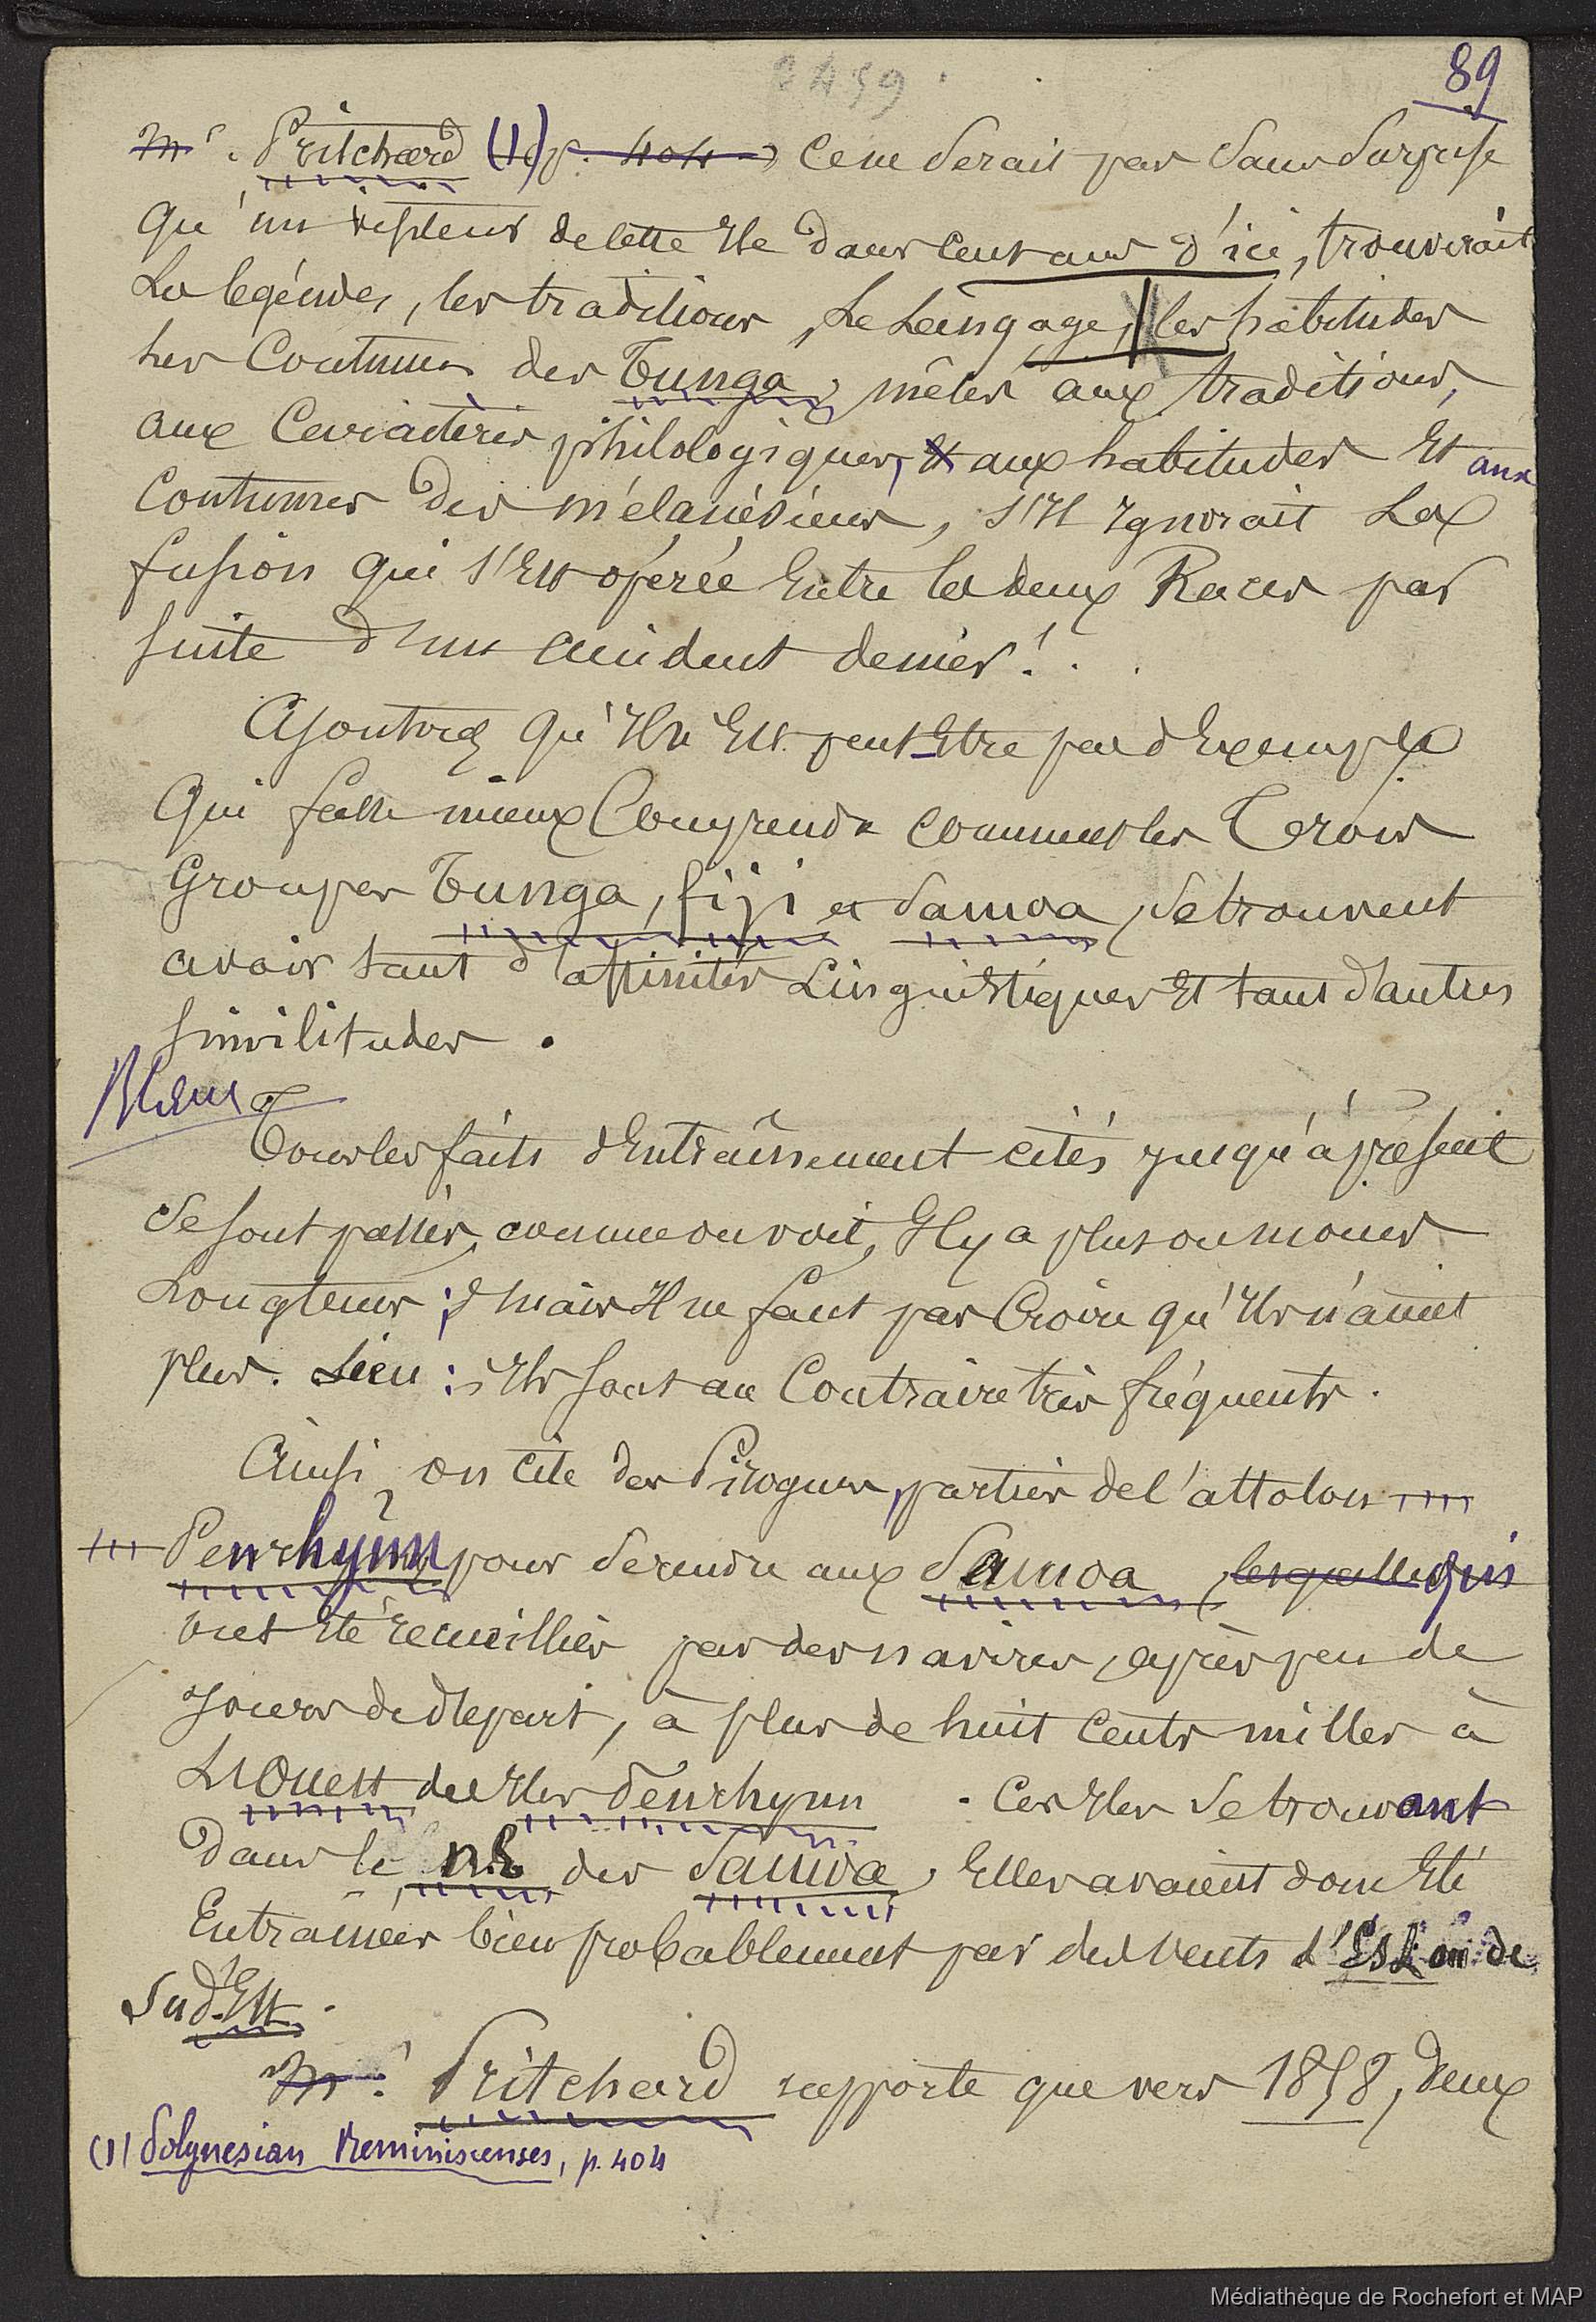 89
2459
Mr. Pritchard (1) p. 404 Ce ne serait pas sans surprise
qu'un visiteur de cette Ile dans cent ans d'ici, trouverait
les légendes, les traditions, le langage, les habitudes
les Coutumes des Tunga, mêlés aux traditions,
aux Caractères philologiques, et aux habitudes Et aux
Coutumes des mélanésiens, s'Il Ignorait La
fusion qui s'Est opérée Entre les deux Races par
suite d'un accident de mer!
Ajoutons qu'Il n'Est peut-Etre pas d'Exemple
Qui fasse mieux Comprendre comment les Trois
Groupes Tunga, fiji et Samoa, se trouvent
avoir tant d'affinités Linguistiques Et tant d'autres
similitudes.
Blanc
Tous les faits d'Entraînement cités jusqu'à présent
se sont passés, comme on voit, Il y a plus ou moins
Longtems ; mais Il ne faut pas Croire qu'Ils n'aient
plus. Lieu : Ils sont au Contraire très fréquents.
Ainsi, on cite des Pirogues, parties de l'attolon
Penrhynn pour se rendre aux Samoa, lesquelles qui
ont Eté recueillies par des navires, après peu de
jours de départ, à plus de huit Cents milles à
L'Ouest des Iles Penrhynn. Ces Iles se trouvant
Dans le N.E des Samoa, Elles avaient donc Eté
Entraînées bien probablement par des vents d'Est ou de
Sud-Est.
Mr. Pritchard rapporte que vers 1858, deux
(1) Polynesian Reminiscenses, p. 404
Médiathèque de Rochefort et MAP